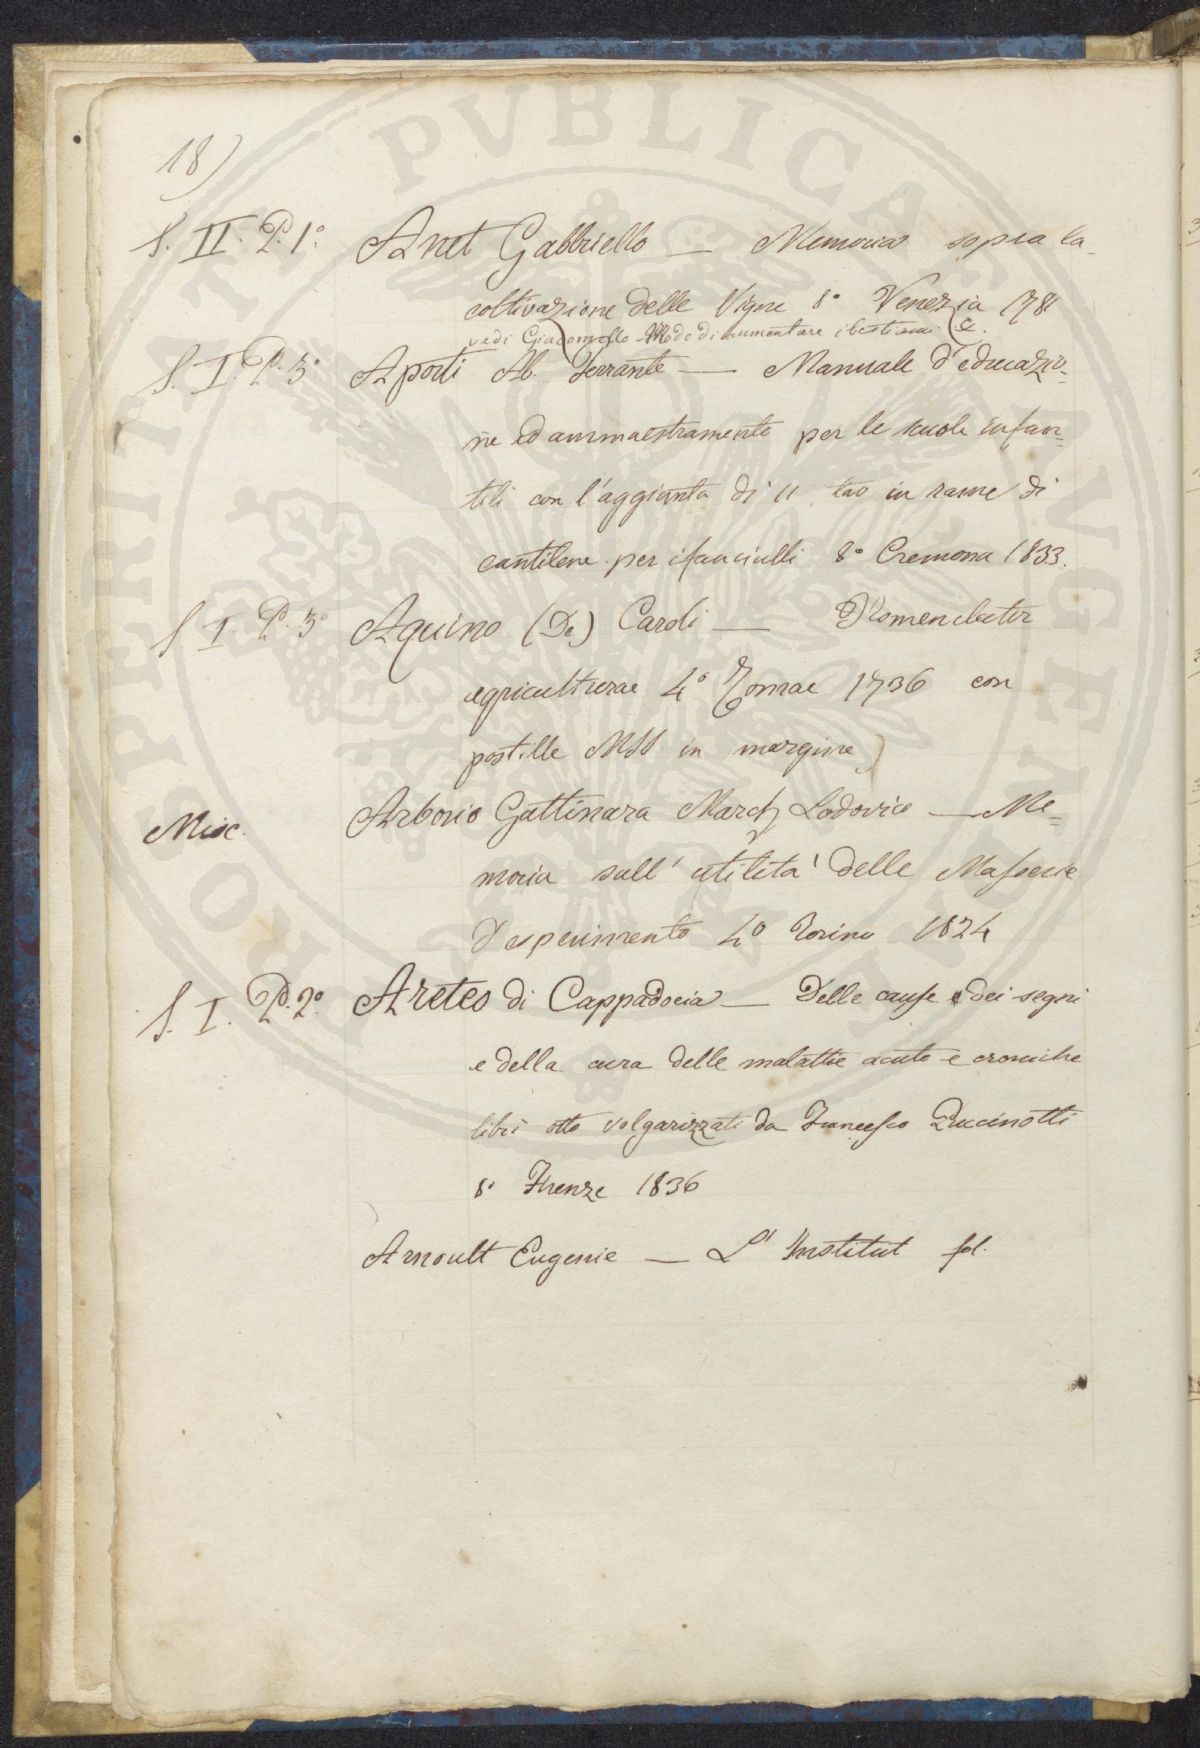 18)
S. II. P. 1º. Anet Gabbriello — Memoria sopra la
coltivazione delle Vigne 8º Venezia 1781
vedi Giacomello Modo di aumentare i bestiami &.
S. I. P. 3º Aporti Ab. Ferrante — Manuale d'educazio-
ne ed ammaestramento per le scuole infan=
tili con l'aggiunta di 11 tav in rame di
cantilene per i fanciulli 8º Cremona 1833.
S. I. P. 3º Aquino (De) Caroli — Nomenclator
agriculturae 4º Romae 1736 con
postille MSS. in margine)
Misc. Arborio Gattinara March Lodovico — Me=
moria sull' utilità delle Masserie
d'esperimento 4º Torino 1824
S. I. P. 2º. Areteo di Cappadocia — Delle cause e dei segni
e della cura delle malattie acute e croniche
libri otto volgarizzati da Francesco Puccinotti
8º Firenze 1836
Arnoult Eugenie — L' Institut fol.
PROSPERITATI PVBLICAE AVGENDAE